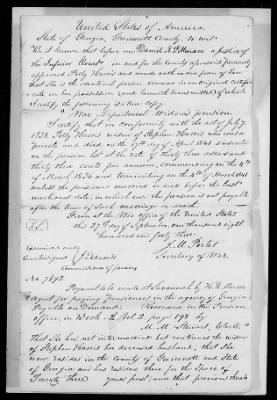 United States of America.
State of Georgia, Gwinnett County, to wit:
Be it known that before me Daniel N. Pittman a justice of
the Inferior Court in and for the County aforesaid personally
appeared Polly Harris and made oath in due form of law
that she is the identical person named in an original certifi-
cate in her possession (and herewith transmitted) of which
I certify the following is a true copy.
"War Department. Widows pension.
I certify that in conformity with the act of July 7.
1838. Polly Harris widow of Stephen Harris who was a
private and died on the 19th day of April 1841 is inscribed
on the pension list at the rate of thirty three dollars and
thirty three cents per annum, commencing on the 4th
of March 1836 and terminating on the 4th March 1841
unless the pensioner married or died before the last
mentioned date, in which case the pension is not payable
after the time of such marriage or death.
Given at the War office of the United States
this 27th day of September, one thousand eight
hundred and forty three.
J. M. Porter
Secretary of War.
Examined and
Countersigned J. L. Edwards
Commissioner of pensions
No. 7692.
Payment to be made at Savannah by
Agent for paying Pensioners in the agency of Georgia
Payable on Demand. Recorded in the Pension
office, in Book Vol 2 page 198 by
M. M. Clerk.
that she has not intermarried, but continues the widow
of Stephen Harris her deceased husband, that she
now resides in the County of Gwinnett and State
of Georgia and has resided there for the space of
Twenty three years past, and that previous thereto